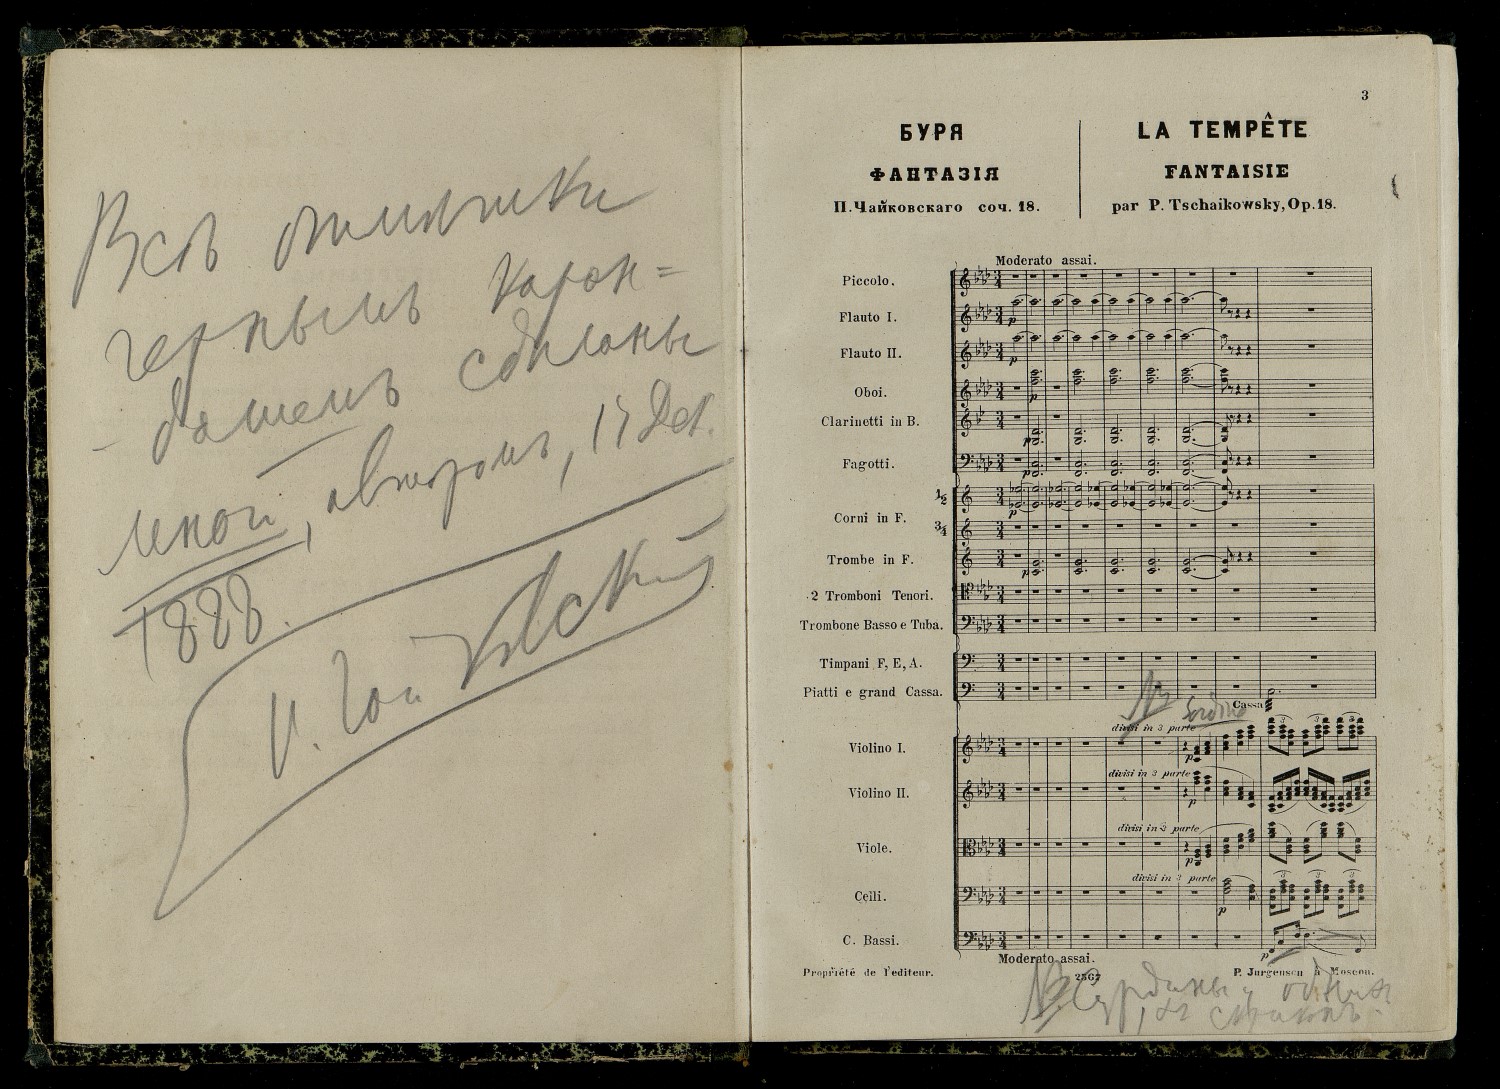 Всѣ отмѣтки
чернымъ каран=
- дашемъ сдѣланы
мной, авторомъ, 17 Дек.
1888.
П. Чайковскій
3
БУРЯ
ФАНТАЗІЯ
П. Чайковскаго соч. 18.
LA TEMPÊTE
FANTAISIE
par P. Tschaikowsky, Op. 18.
Moderato assai.
Piccolo.
Flauto I.
Flauto II.
Oboi.
Clarinetti in B.
Fagotti.
1/2
Corni in F.
3/4
Trombe in F.
2 Tromboni Tenori.
Trombone Basso e Tuba.
Timpani F, E, A.
Piatti e grand Cassa.
Cassa
NB Sordino
divisi in 3 parte
Violino I.
divisi in 3 parte
Violino II.
divisi in 3 parte
Viole.
divisi in 3 parte
Celli.
C. Bassi.
Moderato assai.
Propriété de l'editeur.
2567
P. Jurgenson à Moscou.
NB. Сурдины у